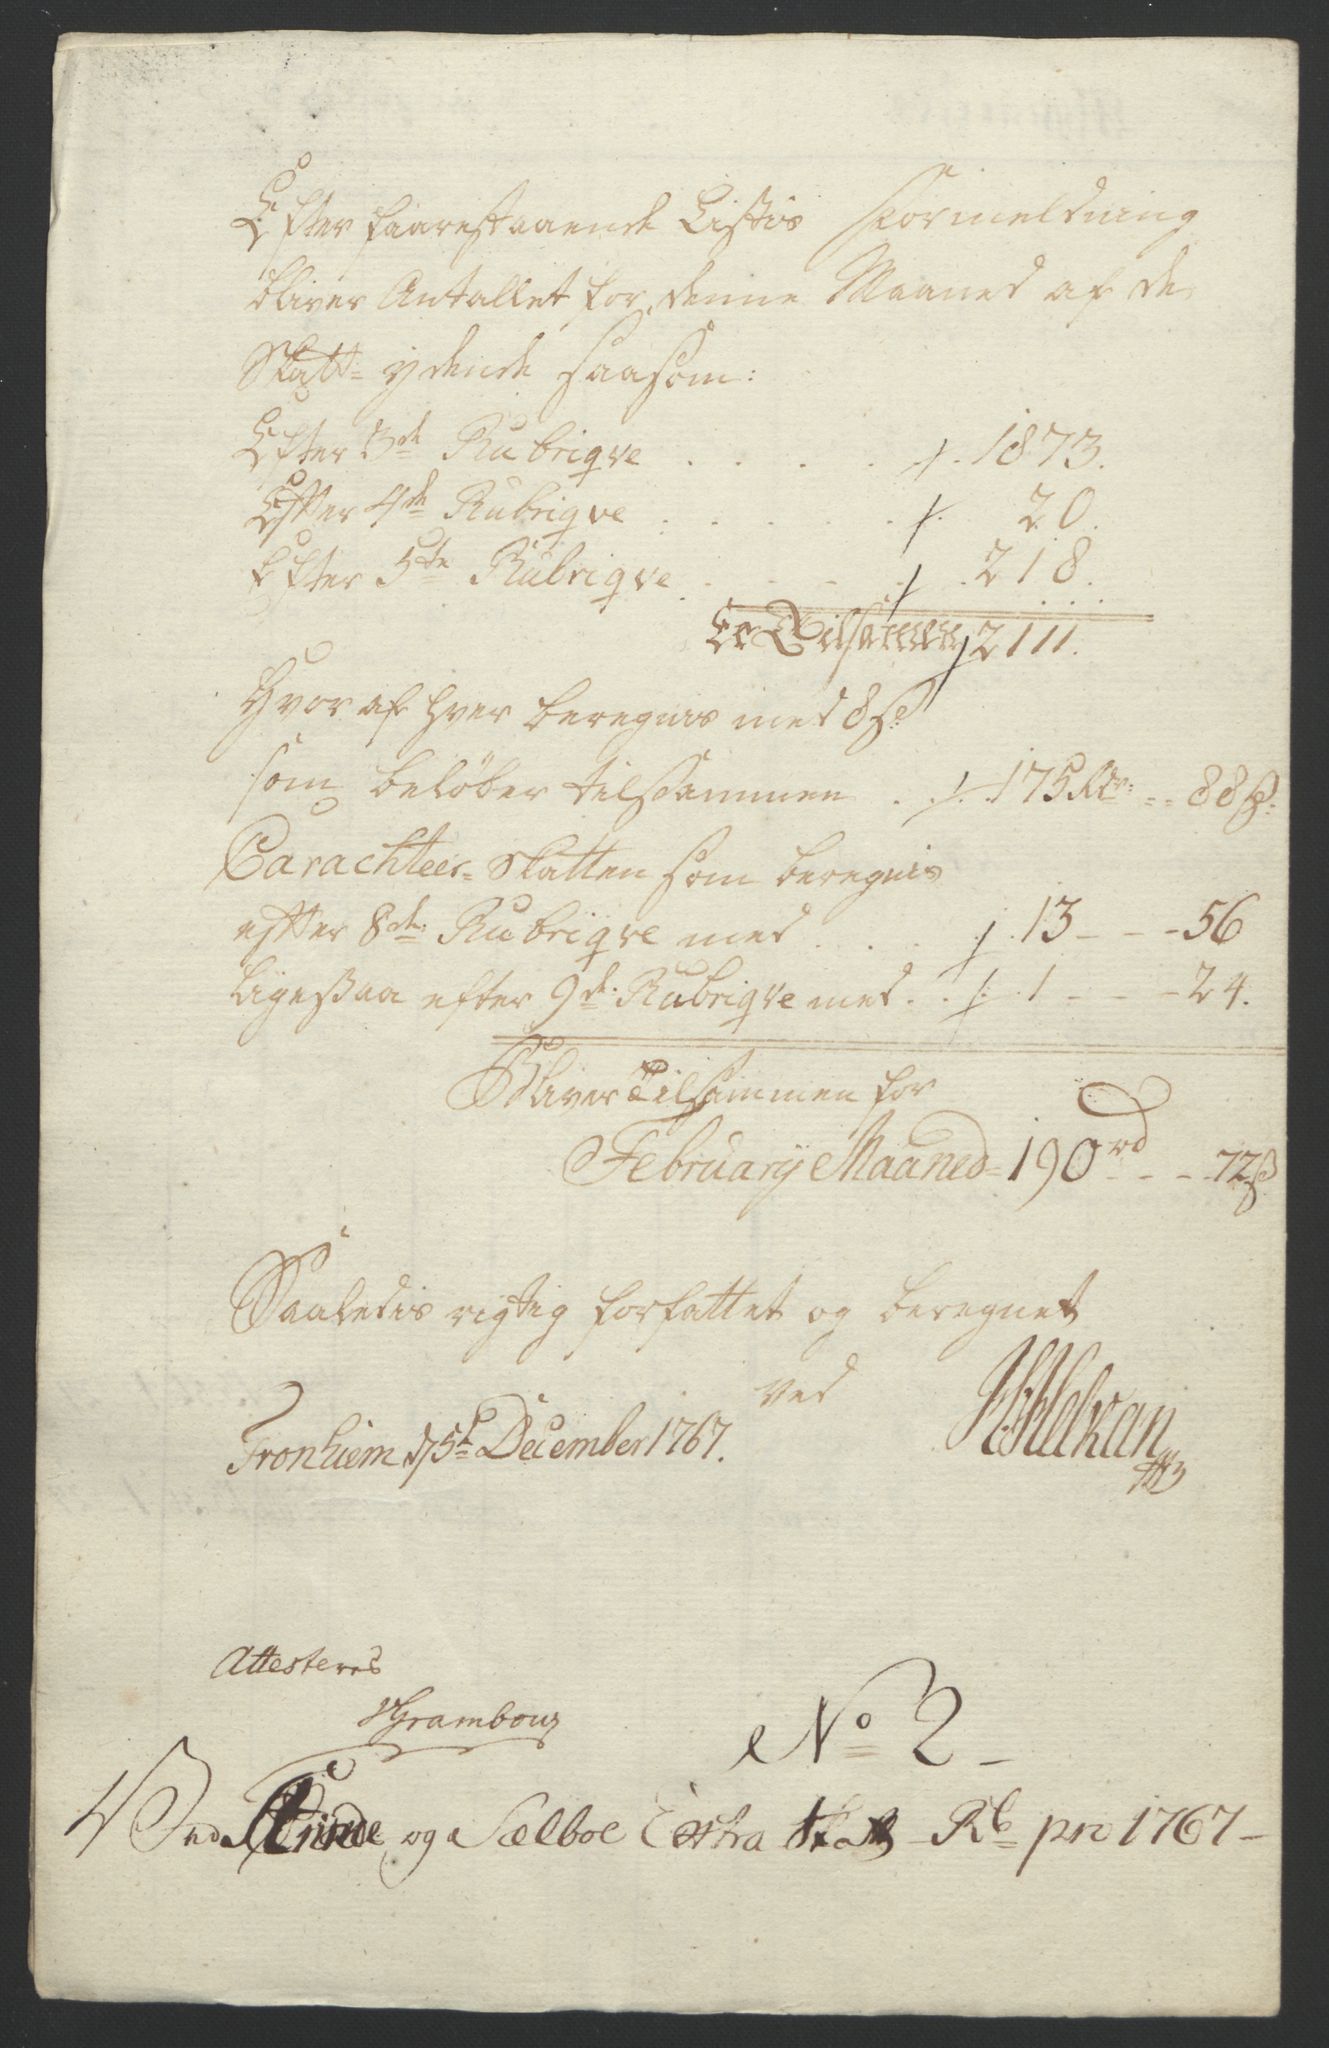 Efter faarestaaende Listes Formeldning
bliver Antallet for denne Maaned af de
Skatt-ydende saasom:
Efter 3de Rubriqve . . . . 1873.
Efter 4de Rubriqve . . . . . 20.
Efter 5te Rubriqve . . . . . 218.
Er Tilsammen 2111.
Hvor af hver beregnes med 8 s
som beløber tilsammen . . 175 Rdr: -- 88 s:
Carachteer-Skatten som beregnis
efter 8de Rubriqve med . . . . 13 - - - 56
Ligesaa efter 9de Rubriqve med . . . 1 - - - - 24.
Bliver Tilsammen for
February Maaned - 190 rd - - - - 72 s
Saaledes rigtig forfattet og beregnet
Ved
Tronhiem d 5te December 1767.
Attesteres
No 2 -
Ved Strinde og Sælboe Extra Skatt - Rb pro 1767 -